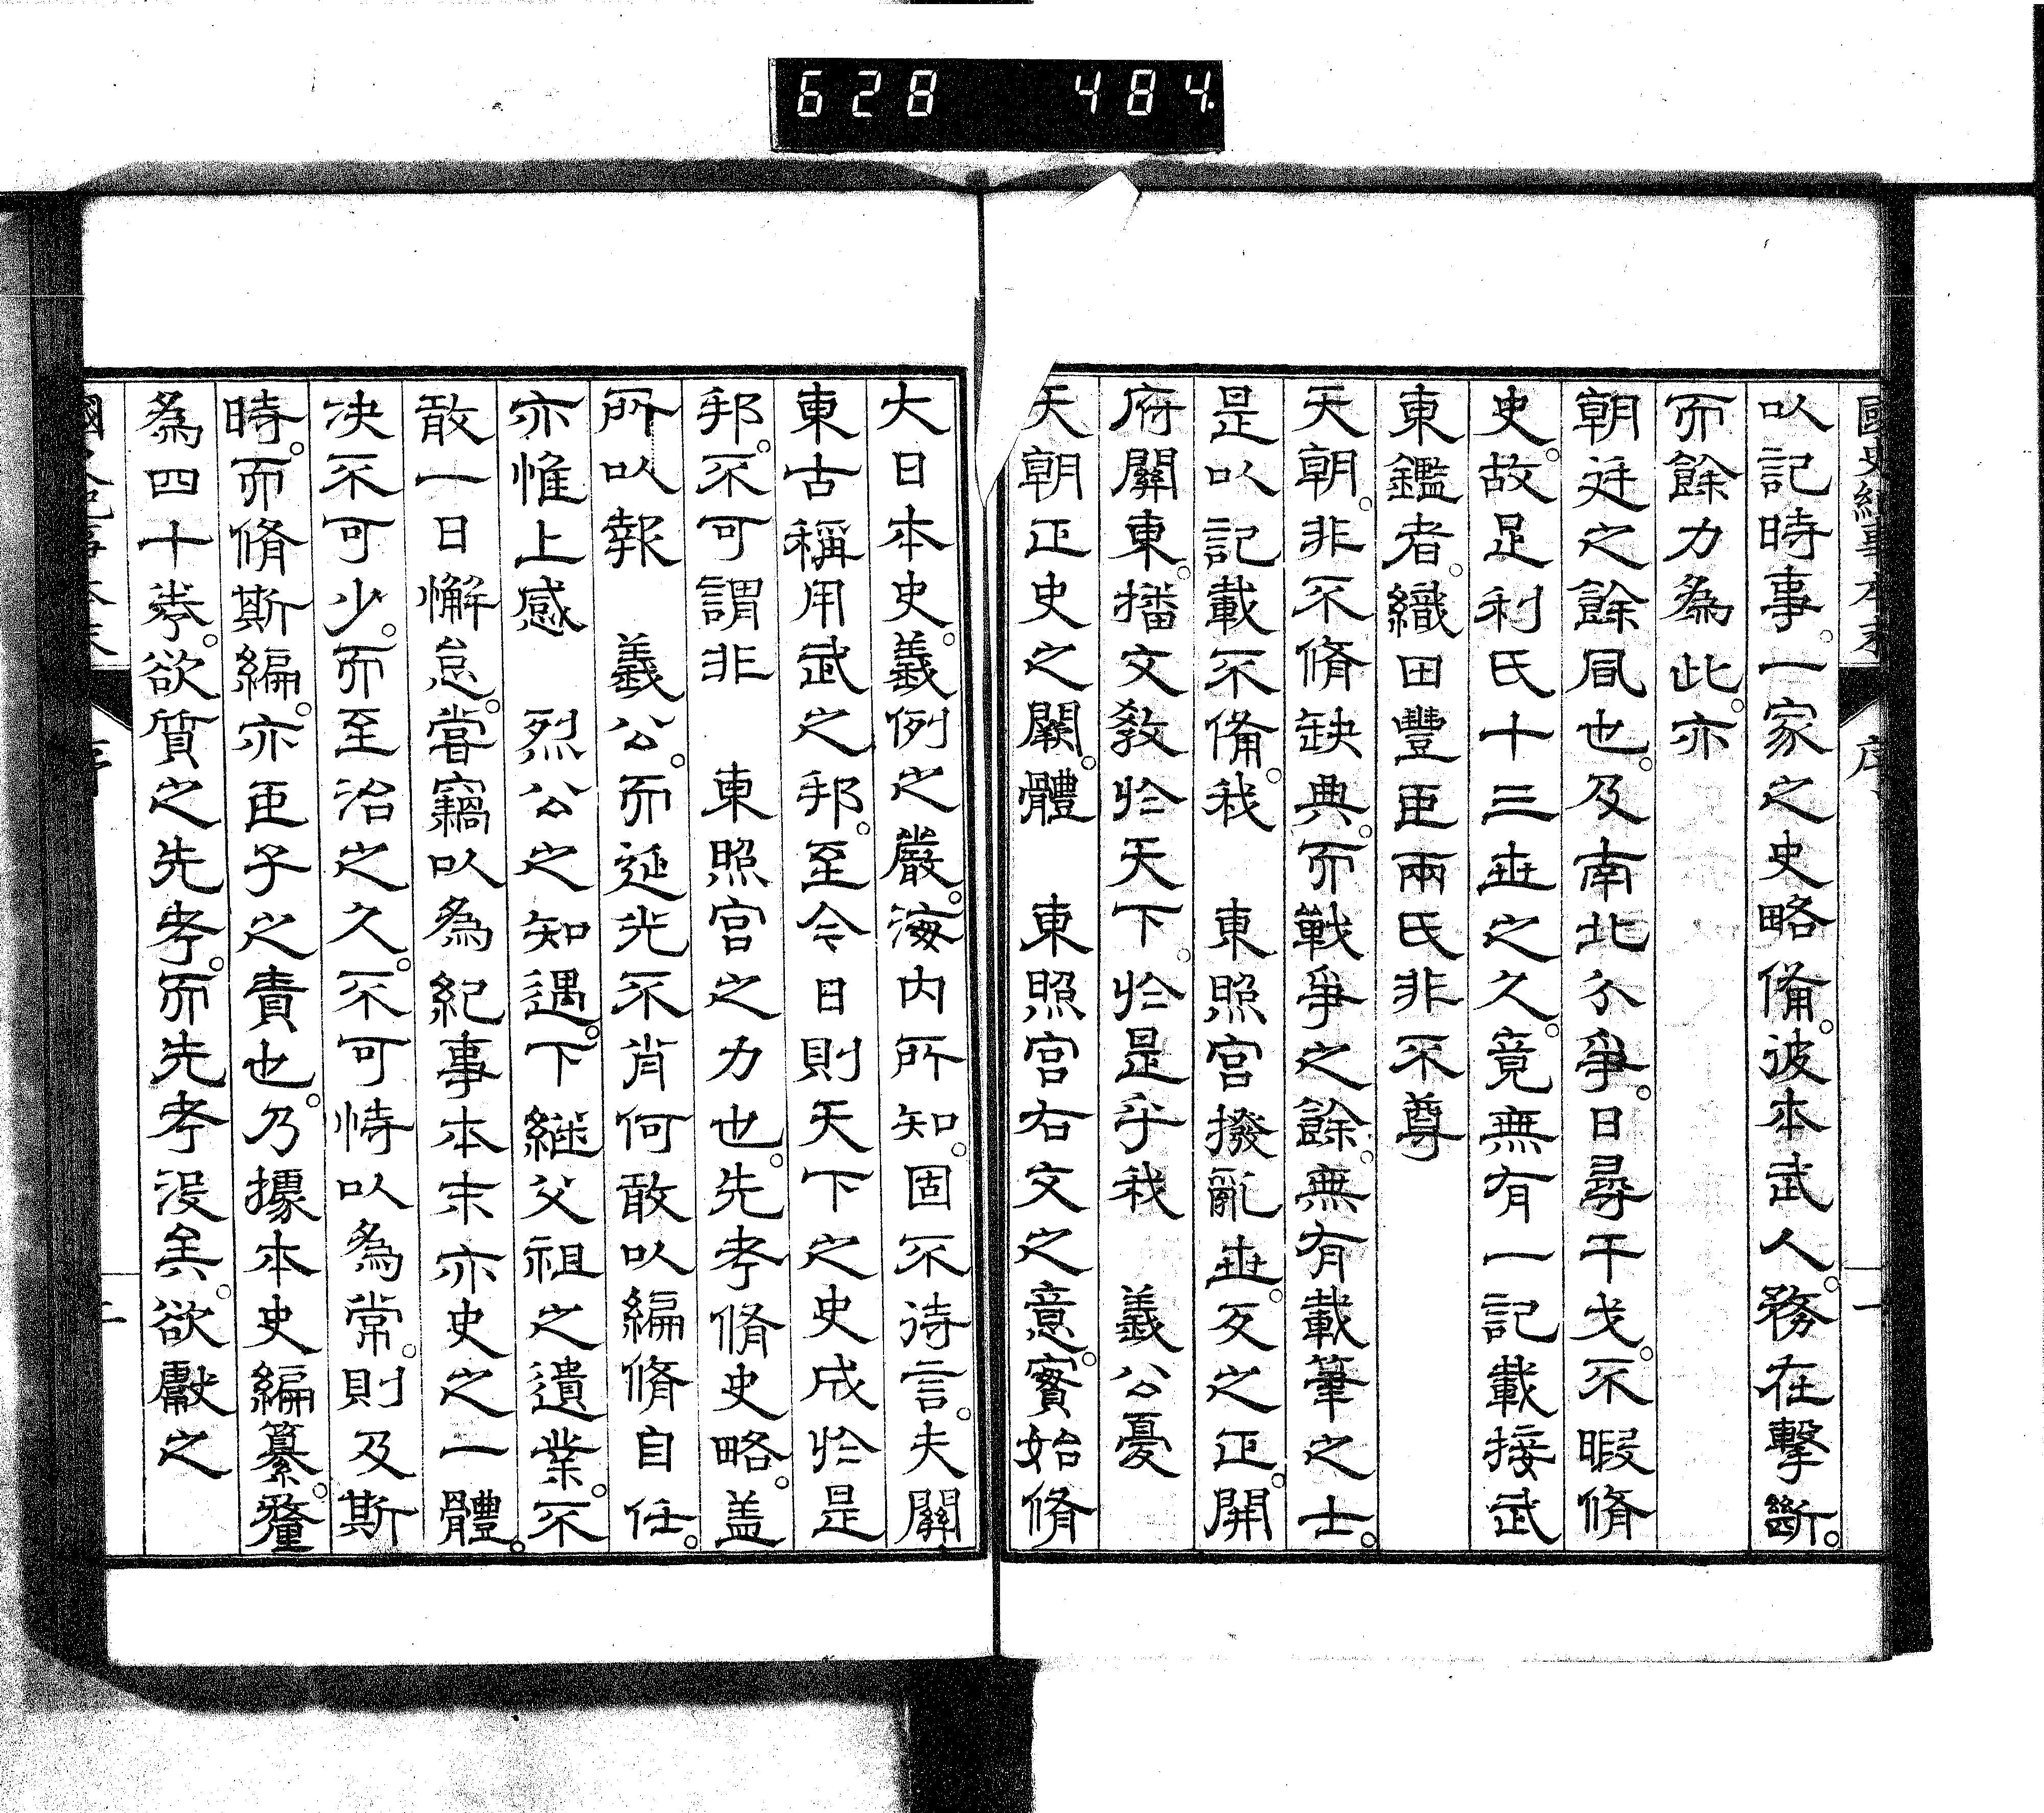 628 484
國史紀事本末 序
以記時事。一家之史略備。彼本武人。務在擊斷。
而餘力為此。亦
朝廷之餘風也。及南北分爭。日尋干戈。不暇脩
史。故足利氏十三世之久。竟無有一記載接武
東鑑者。織田豐臣兩氏非不尊
天朝。非不脩缺典。而戰爭之餘。無有載筆之士。
是以記載不備。我 東照宮撥亂世。反之正。開
府關東。播文敎於天下。於是乎我 義公憂
天朝正史之闕。體 東照宮右文之意。實始脩
大日本史。義例之嚴。海內所知。固不待言。夫關
東古稱用武之邦。至今日則天下之史成於是
邦。不可謂非 東照宮之力也。先考脩史略。盖
所以報 義公。而延光不肖何敢以編脩自任。
亦惟上感 烈公之知遇。下継父祖之遺業。不
敢一日懈怠。嘗竊以為紀事本末亦史之一體。
決不可少。而至治之久。不可恃以為常。則及斯
時。而脩斯編。亦臣子之責也。乃據本史編纂。釐
為四十卷。欲質之先考。而先考沒矣。欲獻之